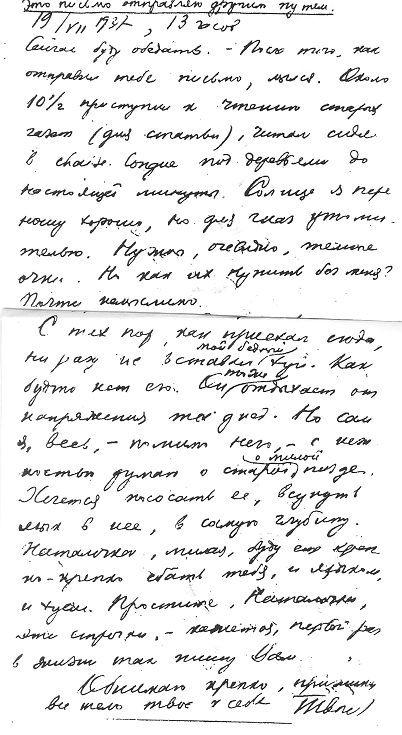 Это письмо отправляю другим путем.
19/VII 1937, 13 часов
Сейчас буду обедать. – После того, как
отправил тебе письмо, мылся. Около
10½ приступил к чтению старых
газет (для статьи), читал сидя
в chaise longue под деревьями до
настоящей минуты. Солнце я пере
ношу хорошо, но для глаз утоми-
тельно. Нужно, очевидно, темные
очки. Но как их купить без меня?
Почти немыслимо.
С тех пор, как приехал сюда,
ни разу не вставал мой бедный хуй. Как
будто нет его. Он тоже отдыхает от
напряжения тех дней. Но сам
я, весь, – помимо него, – с неж
ностью думаю о старой, о милой пизде.
Хочется пососать ее, всунуть
язык в нее, в самую глубину.
Наталочка, милая, буду еще креп
ко-крепко ебать тебя, и языком,
и хуем. Простите, Наталочка,
эти строчки, – кажется, первый раз
в жизни так пишу Вам.
Обнимаю крепко, прижимая
все тело твое к себе. Твой